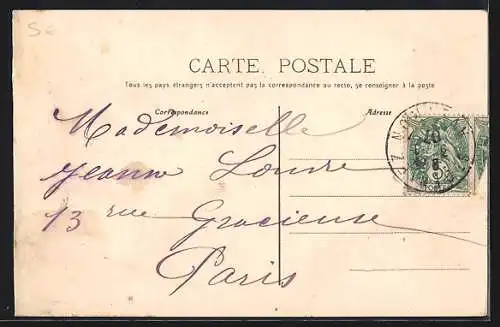 CARTE POSTALE
Tous les pays étrangers n'acceptent pas la correspondance au recto, se renseigner à la poste
Correspondance
Adresse
Mademoiselle
Jeanne Loudre
13 rue Gracieuse
Paris